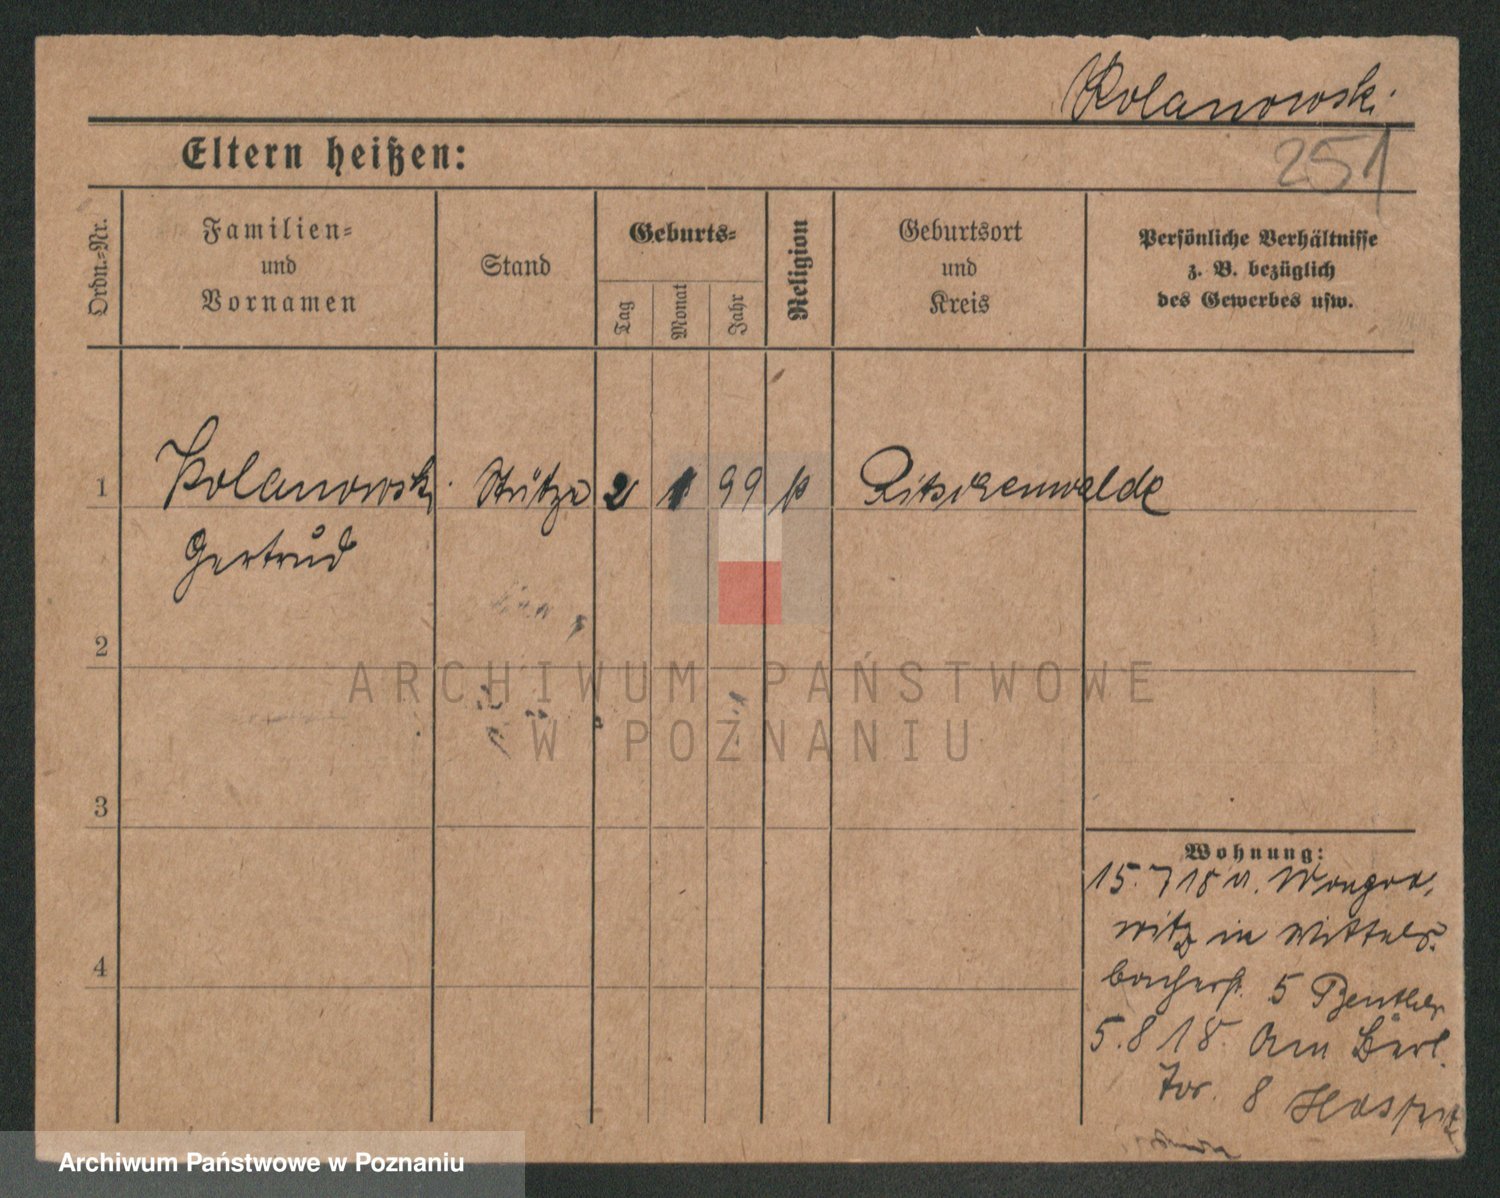 Kolanowski
251
Eltern heißen:
Ordn.-Nr.
Familien-
und
Vornamen
Stand
Geburts-
Tag
Monat
Jahr
Religion
Geburtsort
und
Kreis
Persönliche Verhältnisse
z. B. bezüglich
des Gewerbes usw.
1 Kolanowski Stütze 2 1 99 k Ritschenwalde
Gertrud
2
3
4
ARCHIWUM PAŃSTWOWE
W POZNANIU
Wohnung:
15.7 18 v. Wongro-
witz in Wittels-
bacherst. 5
5.8 18. Am Berl.
Tor. 8
Archiwum Państwowe w Poznaniu